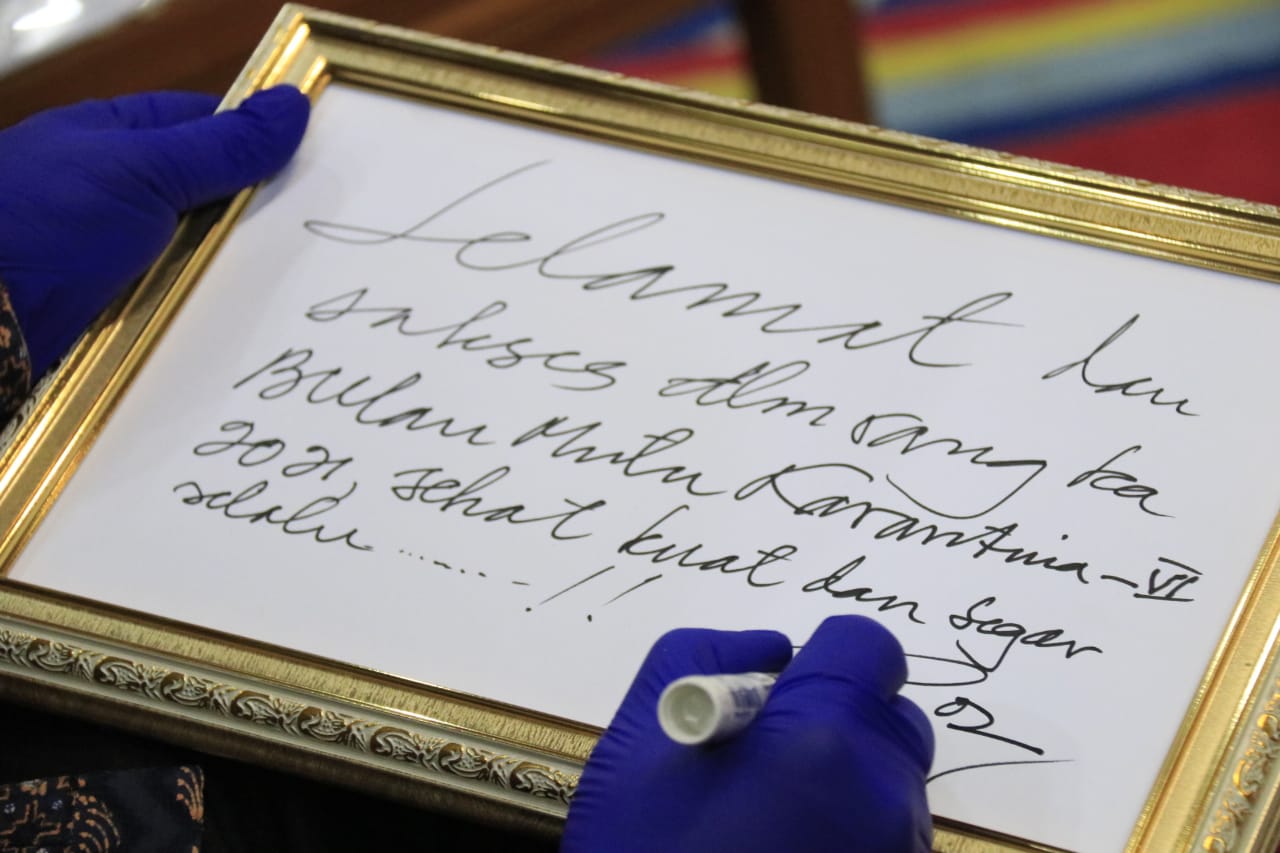 Selamat dan
sukses dlm rangka
Bulan Mutu Karantina-VI
2021, sehat kuat dan segar
selalu ..........!!